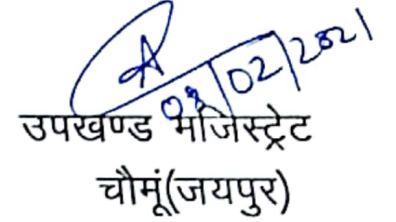 02/2021
उपखण्ड मजिस्ट्रेट
चौमूं(जयपुर)